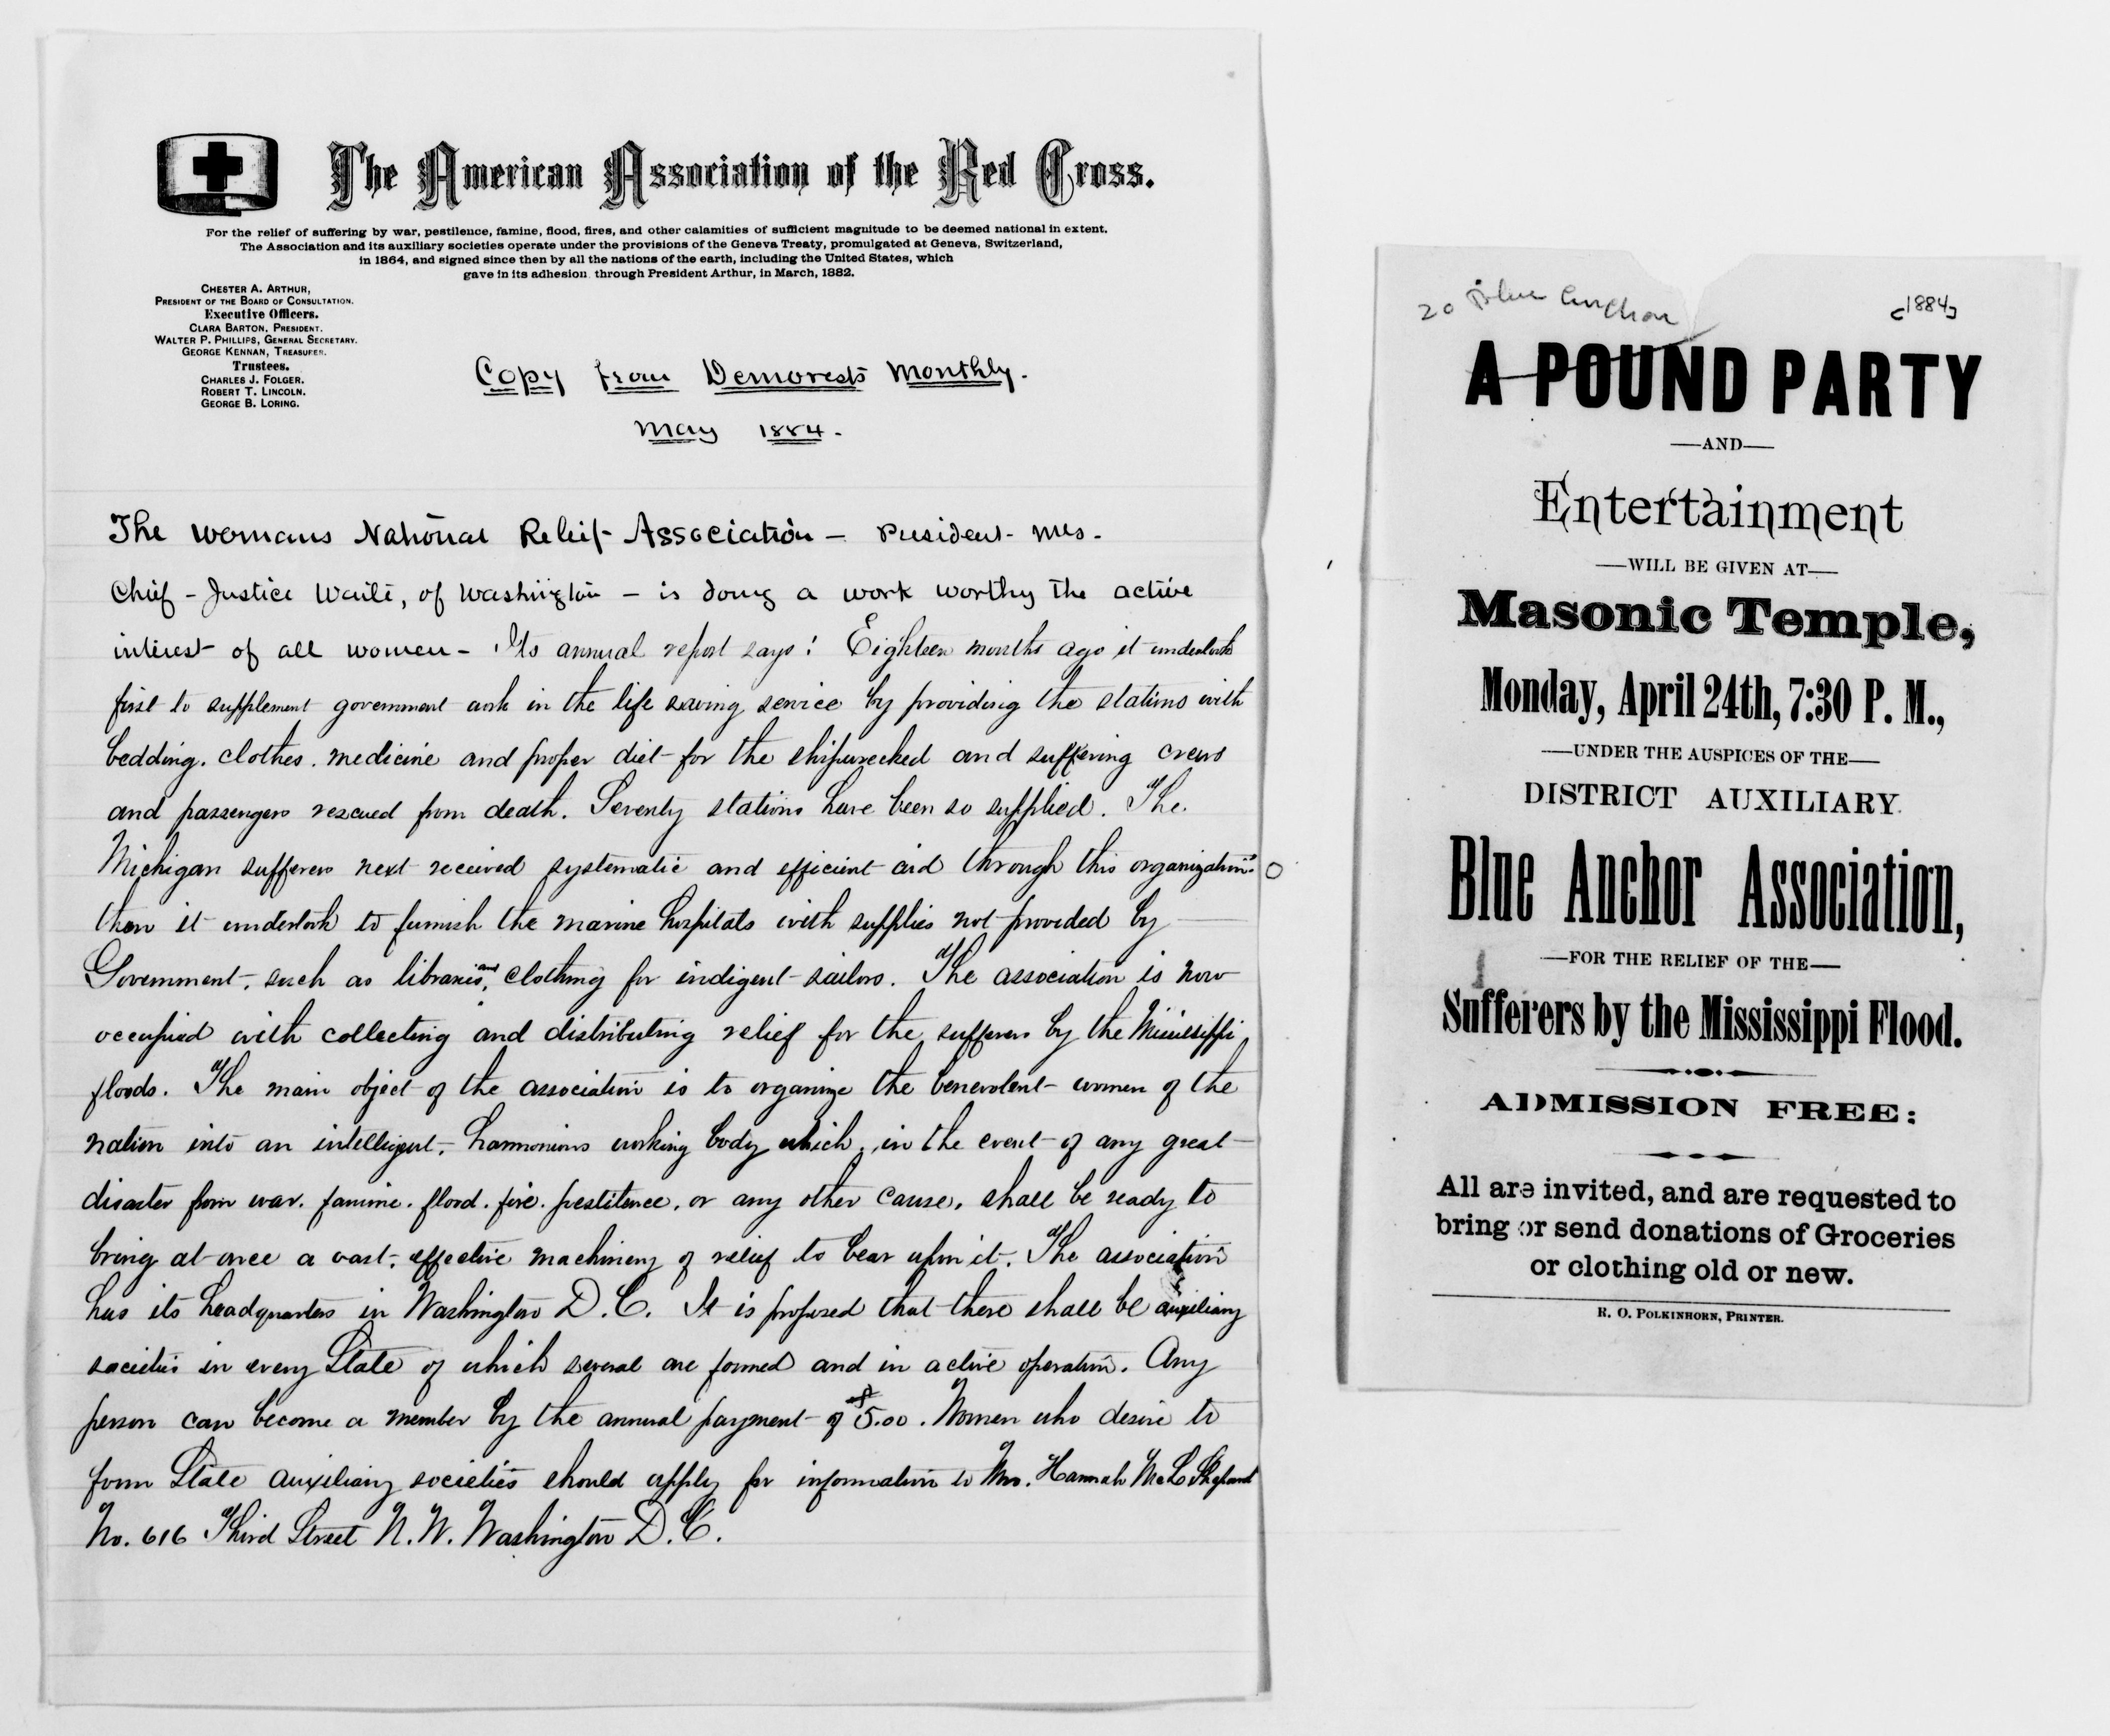 The American Association of the Red Cross.
For the relief of suffering by war, pestilence, famine, flood, fires, and other calamities of sufficient magnitude to be deemed national in extent.
The Association and its auxiliary societies operate under the provisions of the Geneva Treaty, promulgated at Geneva, Switzerland,
in 1864, and signed since then by all the nations of the earth, including the United States, which
gave in its adhesion through President Arthur, in March, 1882.
CHESTER A. ARTHUR,
PRESIDENT OF THE BOARD OF CONSULTATION.
Executive Officers.
CLARA BARTON, PRESIDENT.
WALTER P. PHILLIPS, GENERAL SECRETARY.
GEORGE KENNAN, TREASURER.
Trustees.
CHARLES J. FOLGER.
ROBERT T. LINCOLN.
GEORGE B. LORING.
Copy from Demorests Monthly.
May 1884.
The womans National Relief Association — President Mrs.
Chief-Justice Waite, of Washington — is doing a work worthy the active
interest of all women — Its annual report says: Eighteen months ago it undertook
first to supplement government work in the life saving service by providing the stations with
bedding, clothes, medicine and proper diet for the shipwrecked and suffering crews
and passengers rescued from death. Seventy stations have been so supplied. The
Michigan sufferers next received systematic and efficient aid through this organization:
then it undertook to furnish the marine hospitals with supplies not provided by
Government, such as libraries, and clothing for indigent sailors. The association is now
occupied with collecting and distributing relief for the sufferers by the Mississippi
floods. The main object of the association is to organize the benevolent women of the
nation into an intelligent, harmonious working body which, in the event of any great
disaster from war, famine, flood, fire, pestilence, or any other cause, shall be ready to
bring at once a vast, effective machinery of relief to bear upon it. The association
has its headquarters in Washington D.C. It is proposed that there shall be auxiliary
societies in every State of which several are formed and in active operation. Any
person can become a member by the annual payment of $5.00. Women who desire to
form State auxiliary societies should apply for information to Mrs. Hannah McL Shepard
No. 616 Third Street N.W. Washington D.C.
20 Blue Anchor
[1884]
A POUND PARTY
—AND—
Entertainment
—WILL BE GIVEN AT—
Masonic Temple,
Monday, April 24th, 7:30 P. M.,
—UNDER THE AUSPICES OF THE—
DISTRICT AUXILIARY
Blue Anchor Association,
—FOR THE RELIEF OF THE—
Sufferers by the Mississippi Flood.
ADMISSION FREE:
All are invited, and are requested to
bring or send donations of Groceries
or clothing old or new.
R. O. POLKINHORN, PRINTER.